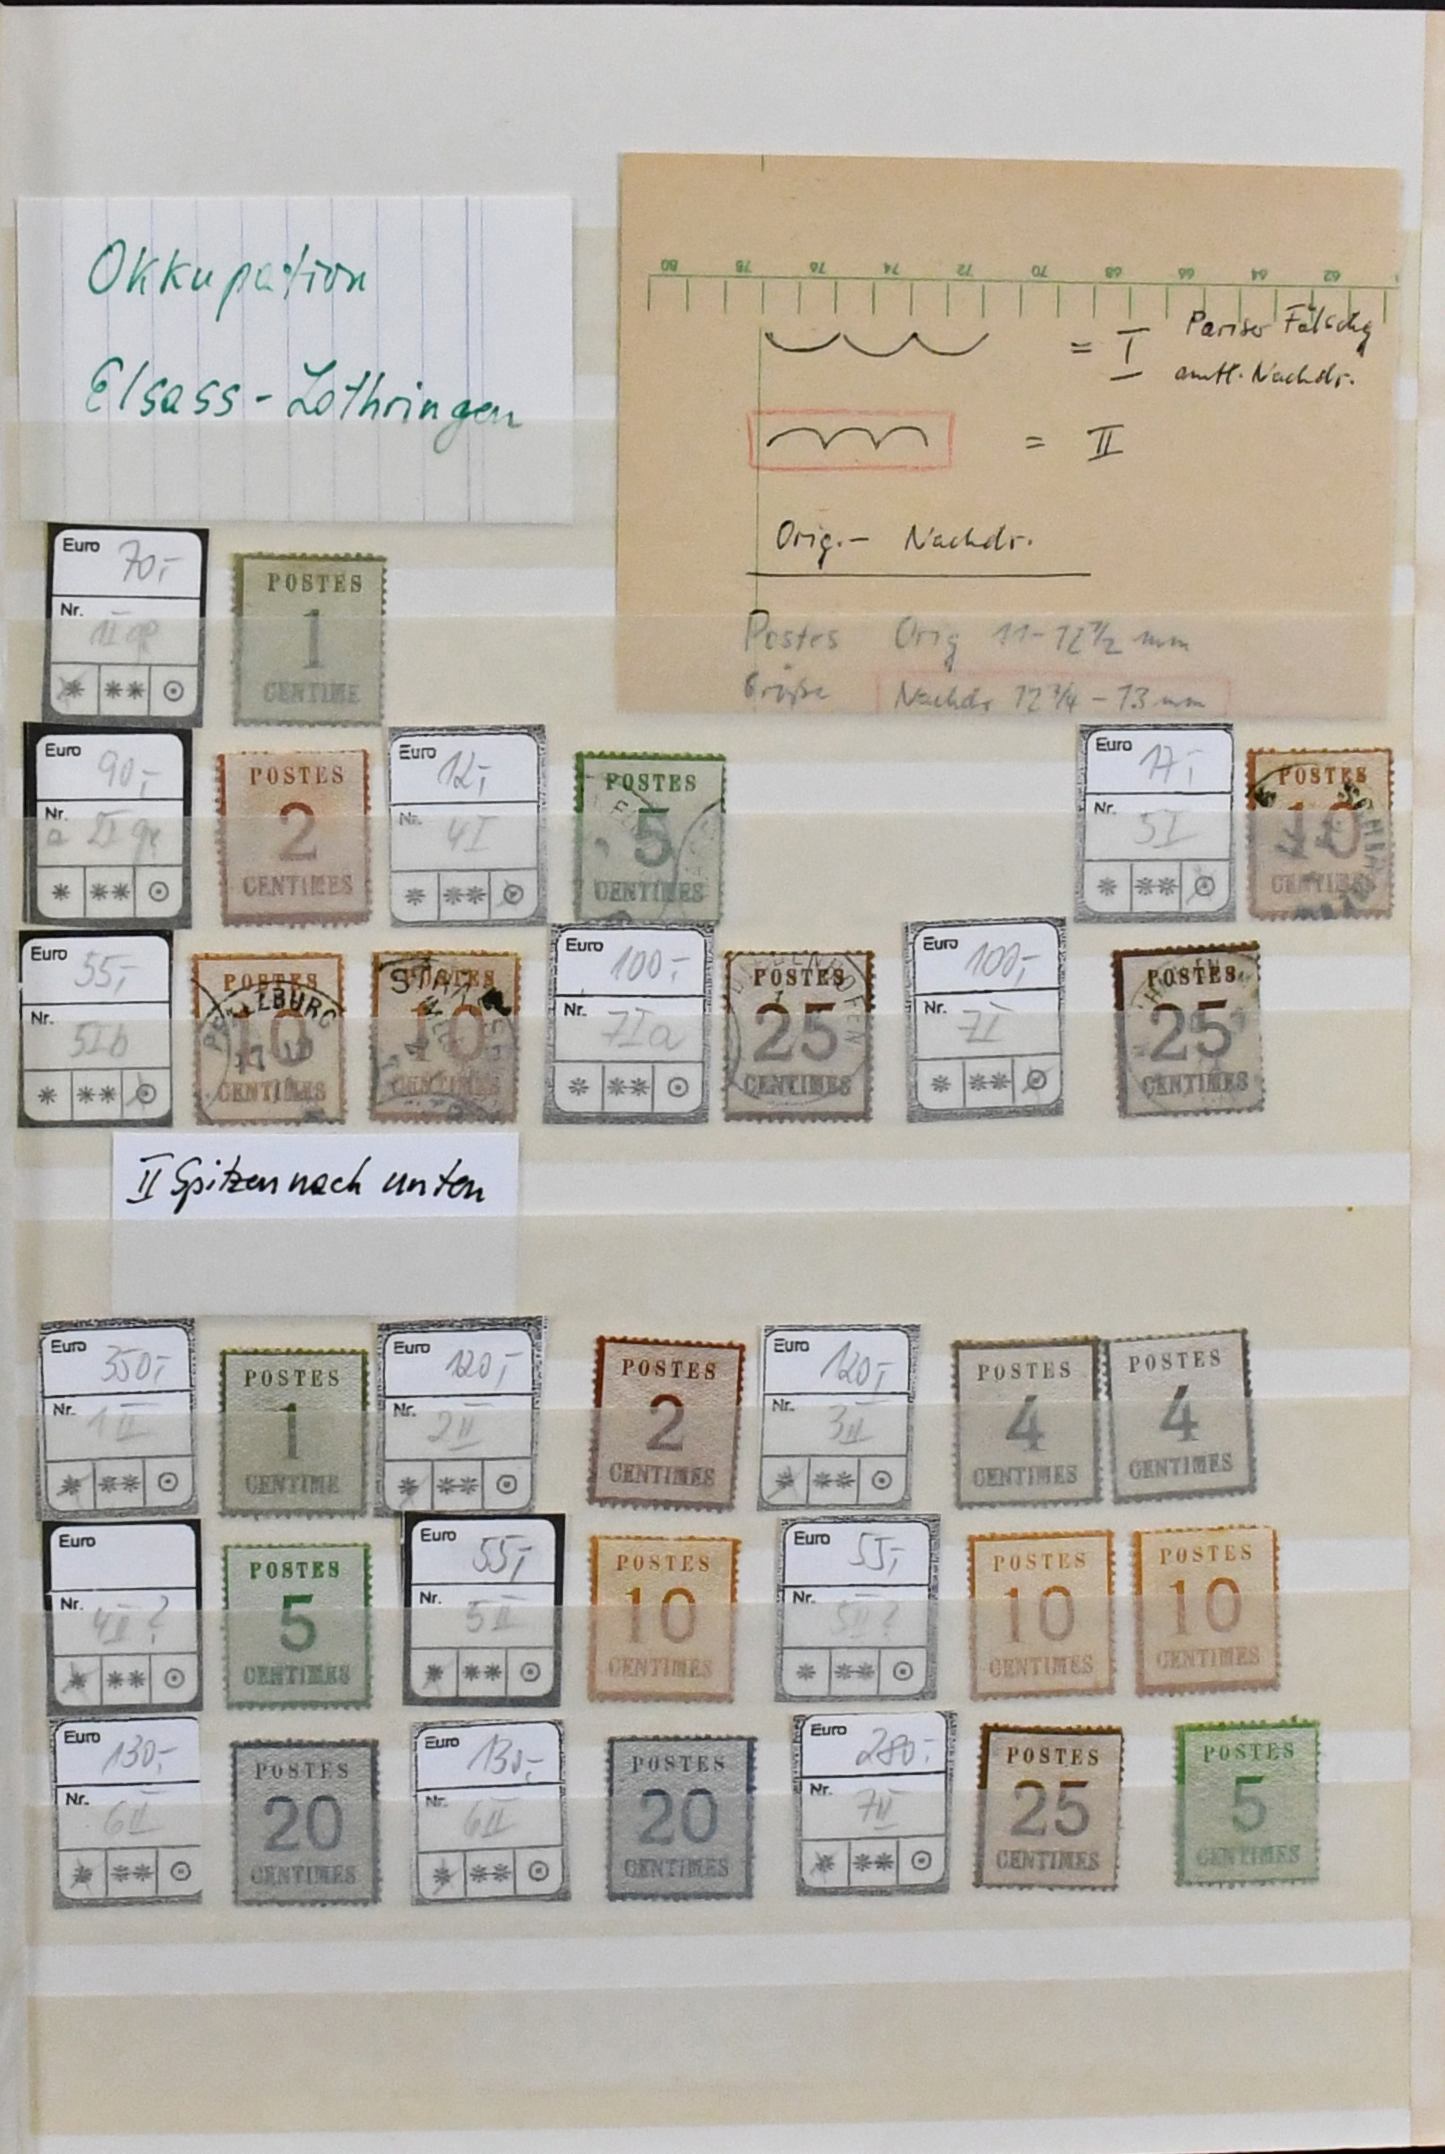 Okkupation
Elsass-Lothringen
80 78 76 74 72 70 68 66 64 62
= I Pariser Fälschg
amtl. Nachdr.
= II
Orig.- Nachdr.
Postes Orig 11-12 1/2 mm
Größe Nachdr 12 3/4 - 13 mm
Euro 70,-
Nr.
POSTES
1
CENTIME
Euro 90,-
Nr.
POSTES
2
CENTIMES
Euro 12,-
Nr. 4I
POSTES
5
CENTIMES
Euro 17,-
Nr. 5I
POSTES
10
CENTIMES
Euro 55,-
Nr. 5Ib
POSTES
10
CENTIMES
POSTES
10
CENTIMES
Euro 100,-
Nr. 7Ia
POSTES
25
CENTIMES
Euro 100,-
Nr. 7I
POSTES
25
CENTIMES
II Spitzen nach unten
Euro 350,-
Nr. 1II
POSTES
1
CENTIME
Euro 120,-
Nr. 2II
POSTES
2
CENTIMES
Euro 120,-
Nr. 3II
POSTES
4
CENTIMES
POSTES
4
CENTIMES
Euro
Nr. 4II?
POSTES
5
CENTIMES
Euro 55,-
Nr. 5II
POSTES
10
CENTIMES
Euro 55,-
Nr. 5II?
POSTES
10
CENTIMES
POSTES
10
CENTIMES
Euro 130,-
Nr. 6II
POSTES
20
CENTIMES
Euro 130,-
Nr. 6II
POSTES
20
CENTIMES
Euro 280,-
Nr. 7II
POSTES
25
CENTIMES
POSTES
5
CENTIMES